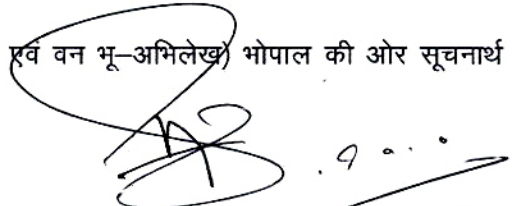 एवं वन भू–अभिलेख) भोपाल की ओर सूचनार्थ